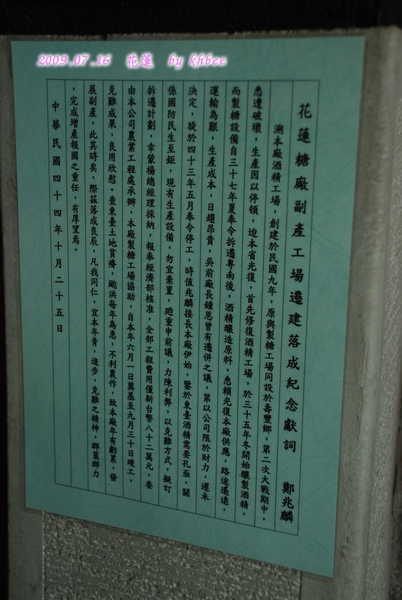 2009.07.16 花蓮 by khbee
花蓮糖廠副產工場遷建落成紀念獻詞 鄭兆麟
溯本廠酒精工場，創建於民國九年，原與製糖工場同設於壽豐鄉，第二次大戰期中，
悉遭破壞，生產因以停頓，迨本省光復，首先修復酒精工場，於三十五年冬開始釀製酒精，
而製糖設備自三十七年夏奉令拆遷粵南後，酒精釀造原料，悉賴光復本廠供應，路途遙遠，
運輸為艱，生產成本，日趨昂貴，吳前廠長鍾恩曾有遷併之議，第以公司限於財力，遲未
決定，旋於四十三年五月奉令停工，時值兆麟接長本廠伊始，鑒於東臺酒精需要孔亟，關
係國防民生至鉅，現有生產設備，勿宜棄置，迺重申前議，力陳利弊，以克難方式，擬訂
拆遷計劃，幸蒙楊總經理採納，報奉經濟部核准，全部工程費用僅新台幣八十二萬元，委
由本公司農業工程處承辦，本廠製糖工場協助，自本年六月一日奠基至九月三十日竣工，
克難成果，良用欣慰。查東臺土地貧瘠，颱洪每年為患，不利農作，致本廠年有虧累，發
展副產，此其時矣，際茲落成良辰，凡我同仁，宜本年青，進步，克難之精神，群策群力
，完成增產報國之重任，有厚望焉。
中華民國四十四年十月二十五日